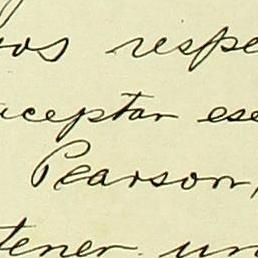 os respe
aceptar ese
Pearson,
tener un